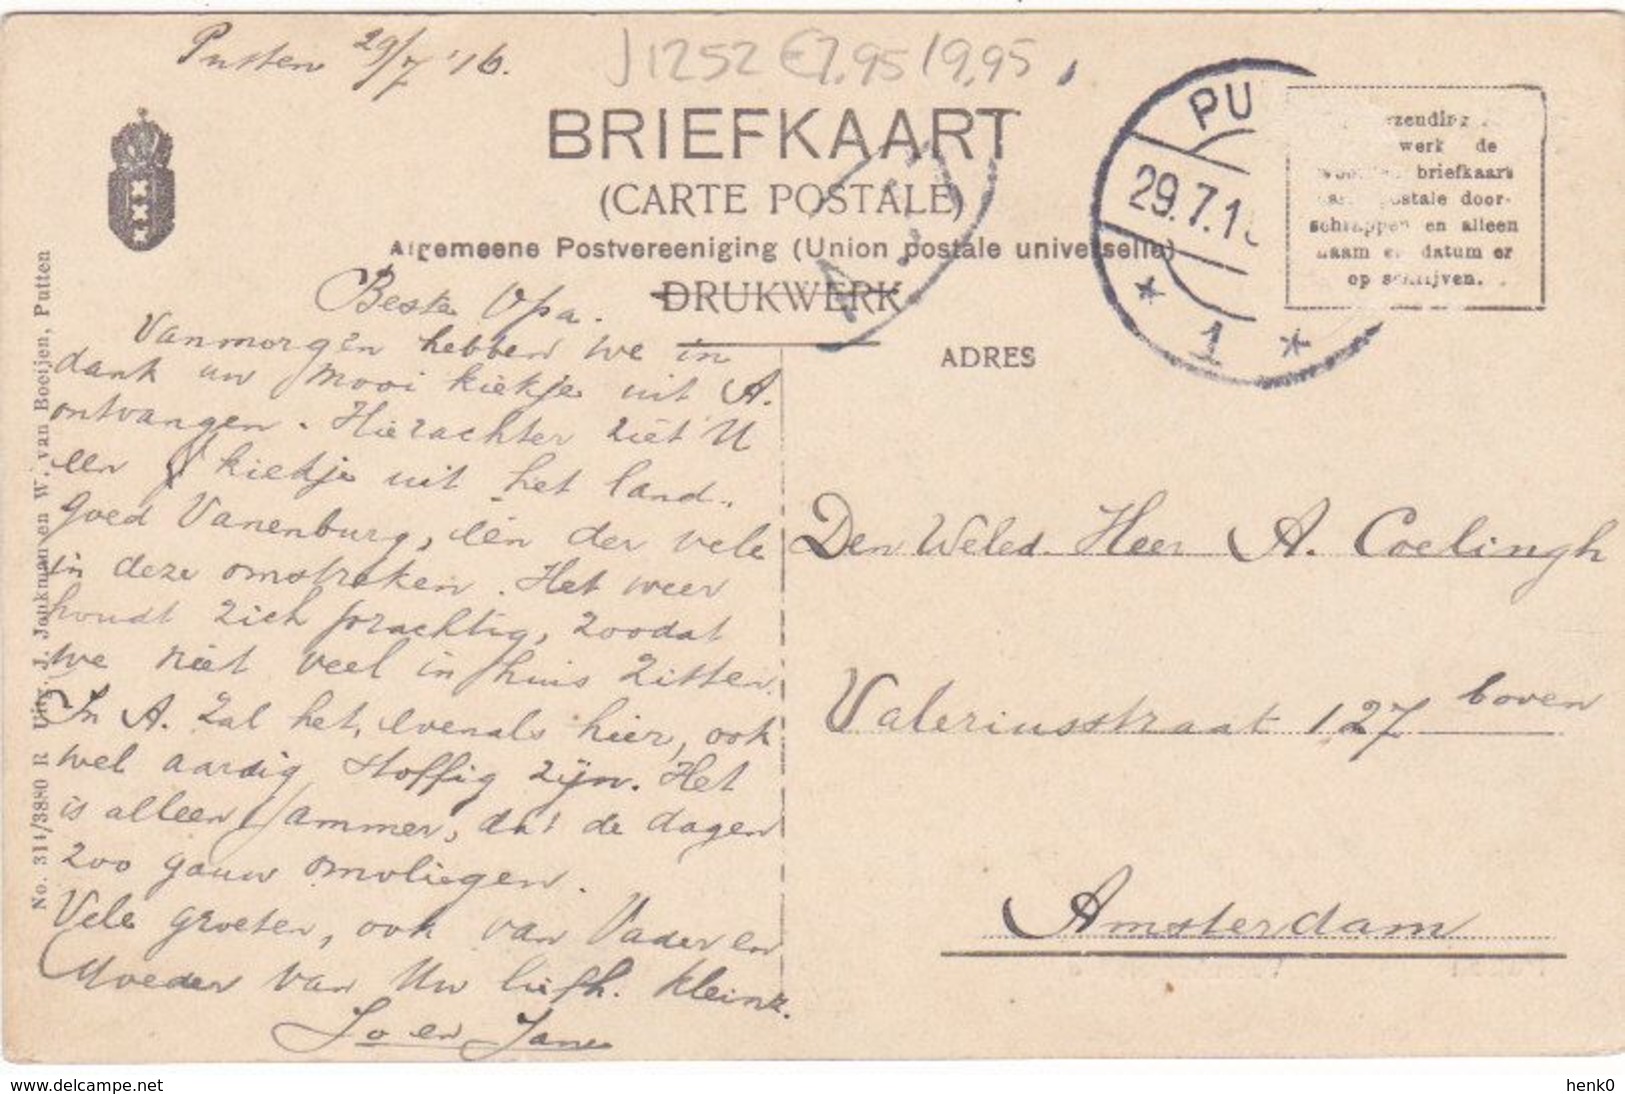 Putten 29/7 '16.
J1252 €7,95/9,95
BRIEFKAART
(CARTE POSTALE)
Algemeene Postvereeniging (Union postale universelle)
DRUKWERK
ADRES
PU
29.7.1
* 1 *
zending
werk de
briefkaart
postale door-
schrappen en alleen
naam en datum er
op schrijven.
Beste Opa.
Vanmorgen hebben we in
dank uw mooi kiekje uit A.
ontvangen. Hierachter ziet U
een kiekje uit het land-
goed Vanenburg, één der vele
in deze omstreken. Het weer
houdt zich prachtig, zoodat
we niet veel in huis zitten.
In A. zal het, evenals hier, ook
wel aardig stoffig zijn. Het
is alleen jammer, dat de dagen
zoo gauw omvliegen.
Vele groeten, ook van Vader en
Moeder van Uw liefh. kleinz.
Jo en Jan
Den Weled. Heer A. Coelingh
Valeriusstraat 127 boven
Amsterdam
No. 314/3880 R Uitg. J. Jonkman en W. van Boeijen, Putten
www.delcampe.net
henk0